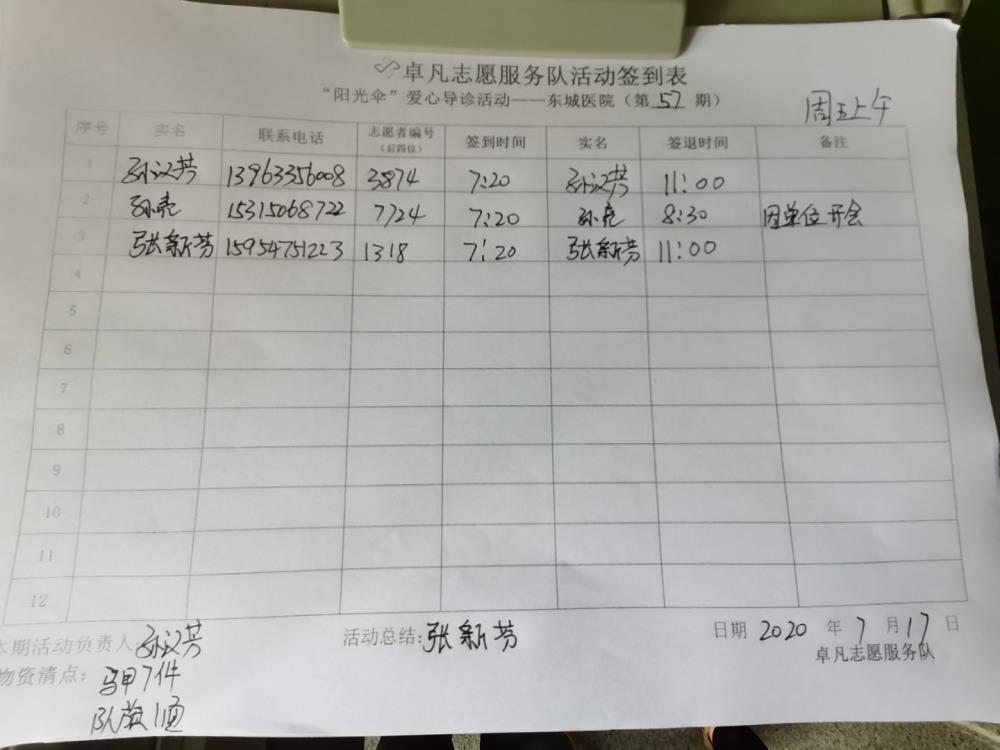 卓凡志愿服务队活动签到表
“阳光伞”爱心导诊活动——东城医院（第 57 期）
周五上午
序号 实名 联系电话 志愿者编号（后四位） 签到时间 实名 签退时间 备注
1 孙汉芳 13963356008 3874 7:20 孙汉芳 11:00
2 孙亮 15315068722 7724 7:20 孙亮 8:30 因单位开会
3 张新芳 15954751223 1318 7:20 张新芳 11:00
4
5
6
7
8
9
10
11
12
本期活动负责人：孙汉芳 活动总结：张新芳 日期 2020 年 7 月 17 日
卓凡志愿服务队
物资清点： 马甲7件
队旗1面